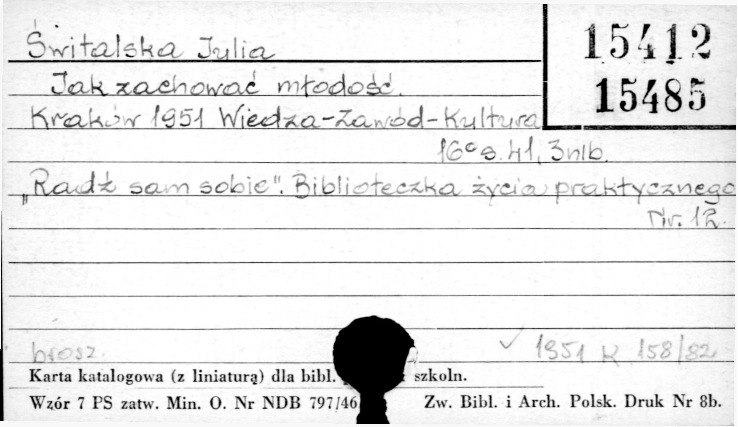 Świtalska Julia
15412
15485
Jak zachować młodość.
Kraków 1951 Wiedza-Zawód-Kultura
16° s. 41, 3 nlb.
„Radź sam sobie". Biblioteczka życia praktycznego
Nr. 12.
brosz.
✓ 1951 K 158/82
Karta katalogowa (z liniaturą) dla bibl. szkoln.
Wzór 7 PS zatw. Min. O. Nr NDB 797/46 Zw. Bibl. i Arch. Polsk. Druk Nr 8b.